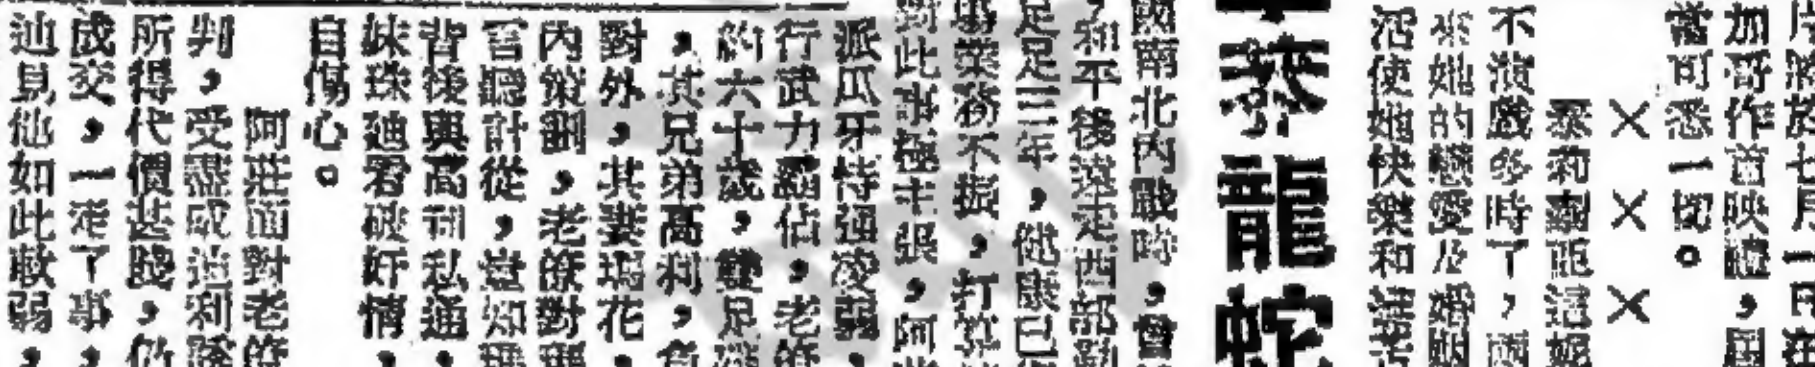 片將於七月一日在
加哥作首映禮，屆
當可悉一切。
×××
泰莉
不演戲多時了，
來她的戀愛及婚姻
活使她快樂和
泰龍蛇
國南北內戰時，曾
，和平後遠走西部
足足三年，健康已
事業務不振，打算
對此事極主張，阿
派瓜牙恃強凌弱，
行武力霸佔。老
約六十歲，雙足
，其兄弟高利，負
對外，其妻瑪花，
內策劃，老僚對
言聽計從，豈知
背後與高利私通，
妹珠迪君破奸情，
自傷心。
阿莊面對老僚
判，受盡威迫利
所得代價甚賤，仍
成交，一走了事，
迪見他如此軟弱，